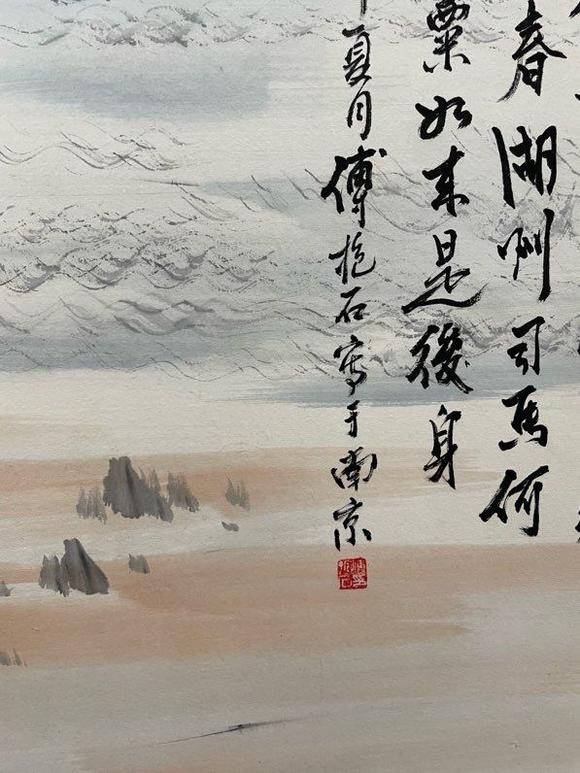 春湖州司馬何
粟如来是後身
夏月傅抱石寫于南京